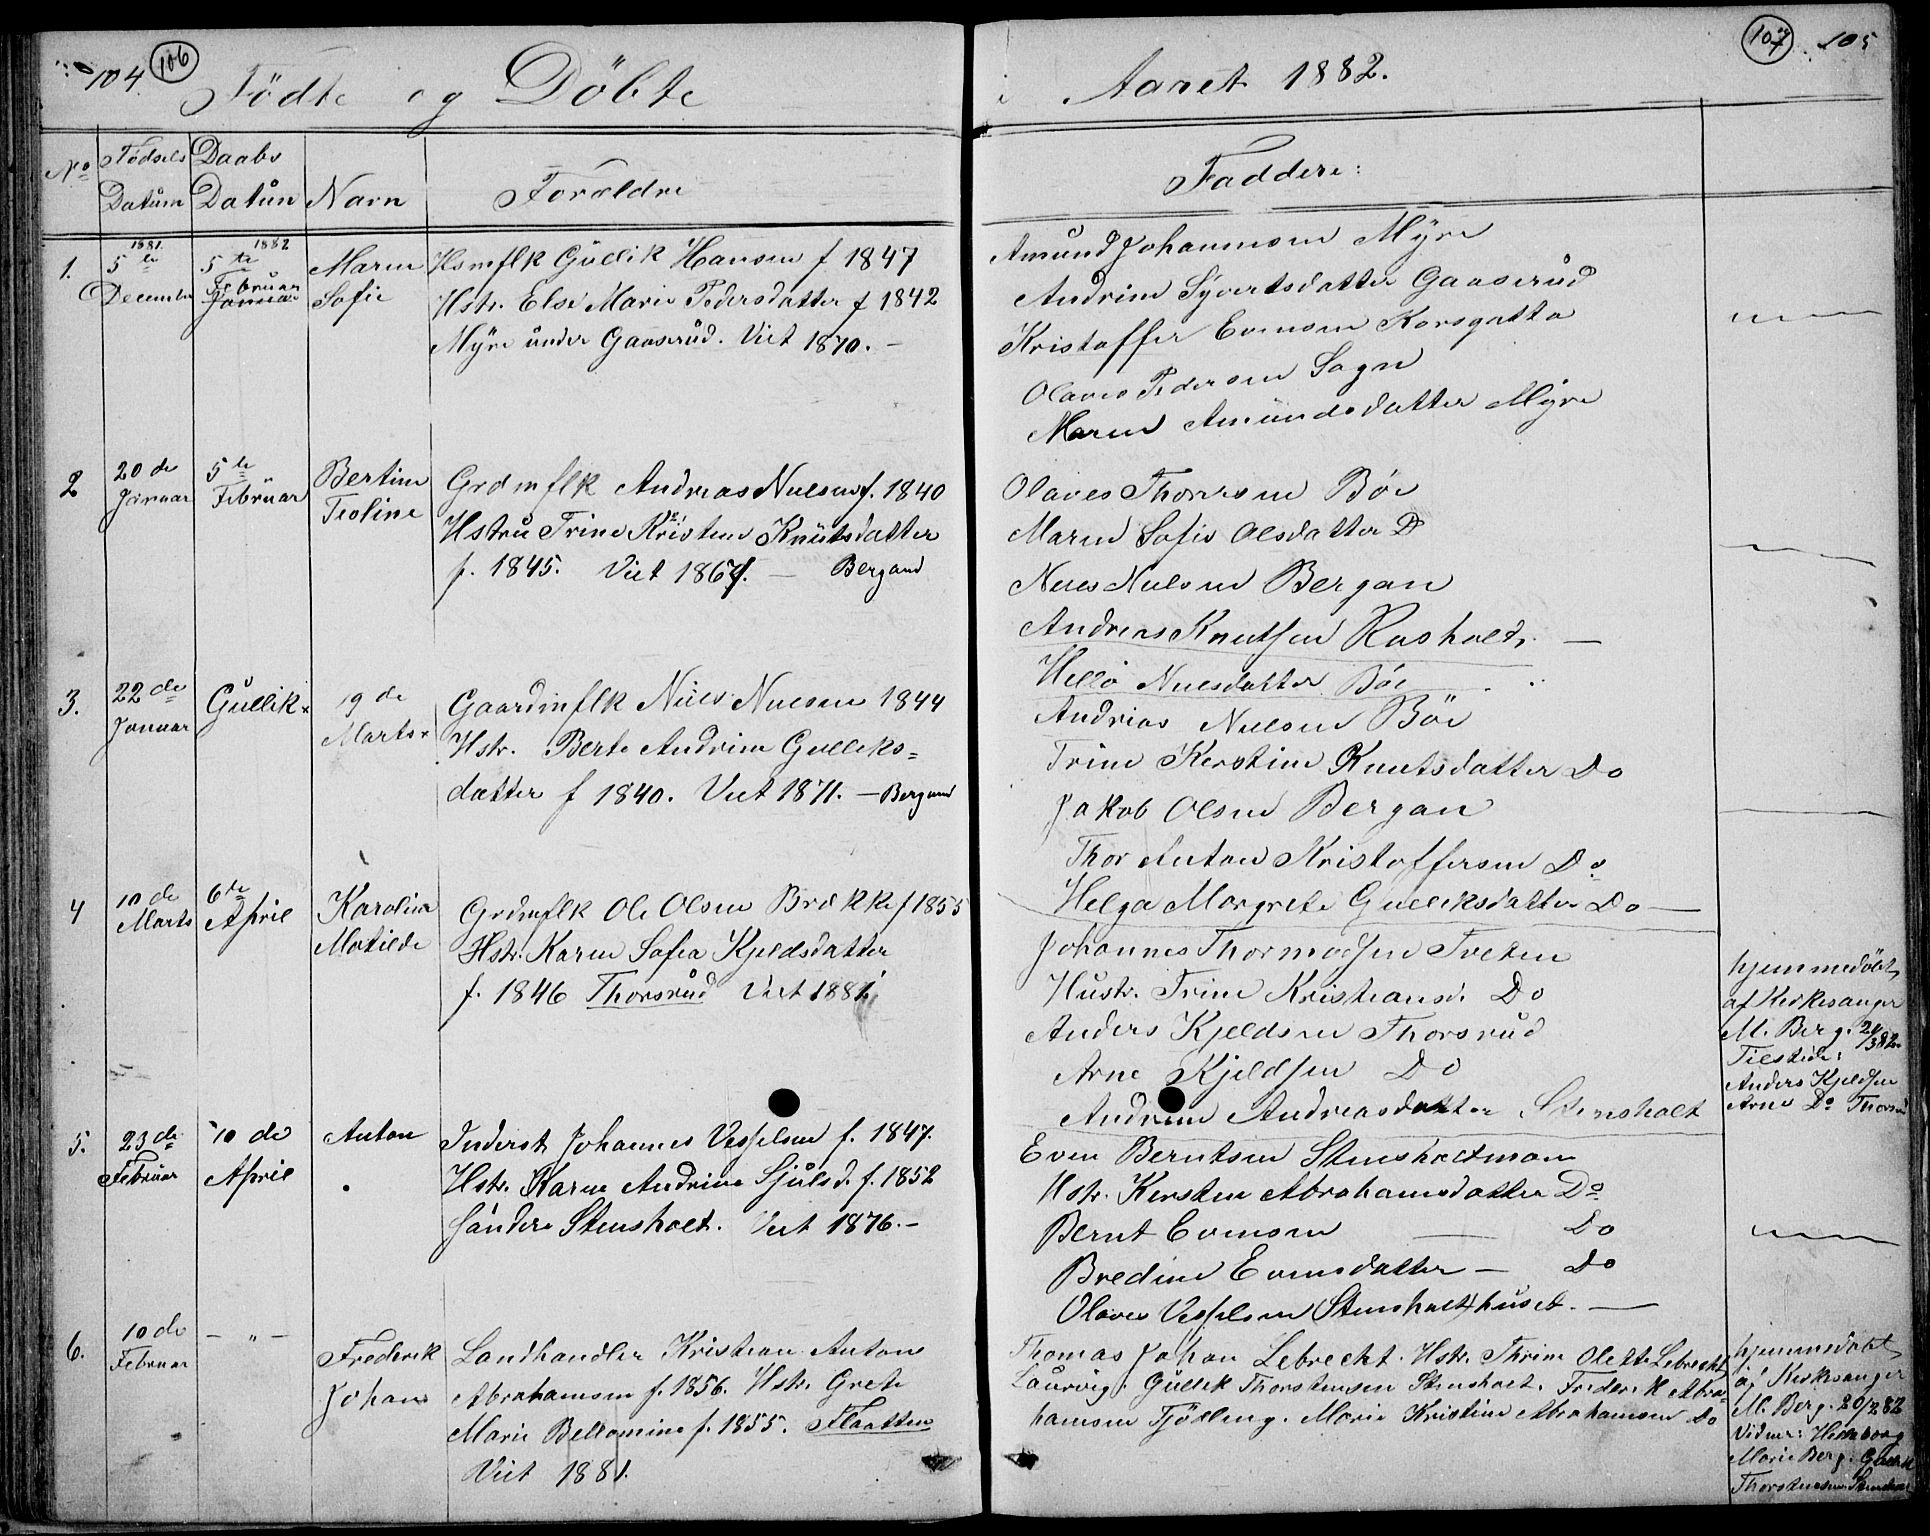 104 106
Födte og Döbte
i Aaret 1882.
107 105
No Födsels Datum Daabs Datum Navn Forældre
Faddere:
1. 1881 5te December 1882 5te Februar Januar Maren Sofie
Hsmflk Gullik Hansen f. 1847
Hstr. Else Marie Pedersdatter f 1842
Myre under Gaaserud. Viet 1870. –
Amund Johannesen Myre
Andrine Syvertsdatter Gaaserud
Kristoffer Evensen Korsgatta
Olaves Pedersen Sagen
Maren Amundsdatter Myre
2 20de Januar 5te Februar Bertine Teoline
Grdmflk Andreas Nielsen f. 1840
Hstru Trine Kristine Knutsdatter
f. 1845. Viet 1867. – Bergand
Olaves Thorsen Böe
Maren Sofie Olsdatter D
Nils Nielsen Bergan
Andreas Knutsen Rasholt. –
Helle Nilsdatter Böe
3. 22de Januar Gullik 19de Marts
Gaardmflk Niels Nielsen 1844
Hstr. Berte Andrine Gulliks=
datter f 1840. Viet 1871. – Bergand
Andreas Nielsen Böe
Trine Kerstine Knutsdatter Do
Jakob Olsen Bergan
Thor Anton Kristoffersen Do
Helga Margrete Gulliksdatter Do –
4 10de Marts 6te April Karolina Matilde
Grdmflk Ole Olsen Brække f 1855
Hstr. Karen Sofea Kjeldsdatter
f. 1846 Thorsrud Viet 1881
Johannes Thormodsen Tveten
Hustr. Trine Kristiansd. Do
Anders Kjeldsen Thorsrud
Arne Kjeldsen Do
Andrine Andreasdatter Stensholt
hjemmedöbt
af Kirkesanger
M. Berg. 24/3 82.
Tilstede:
Anders Kjeldsen
Arne Do Thorsrud
5. 23de Februar 10de April Anton
Inderst Johannes Vesselsen f. 1847.
Hstr. Karen Andrine Sjulsd. f. 1852
Söndre Stensholt. Viet 1876. –
Even Berntsen Stensholtmoen
Hstr. Kersten Abrahamsdatter Do
Bernt Evensen – Do
Bredine Evensdatter – Do
Olaves Vesselsen Stensholthuset. –
6. 10de Februar – " – Frederik Johan
Landhandler Kristian Anton
Abrahamsen f. 1856. Hstr. Grete
Marie Bellomine f. 1855. Flaatten
Viet 1881.
Thomas Johan Lebrecht. Hstr. Thrine Olette Lebrecht
Laurvig. Gullik Thorstensen Stensholt. Frederik Abra=
hamsen Tjölling. Marie Kristine Abrahamsen Do
hjemmedöbt
af Kirkesanger
M. Berg. 20/2 82
Vidner:
Marie Berg. Gullik
Thorstensen Stensholt